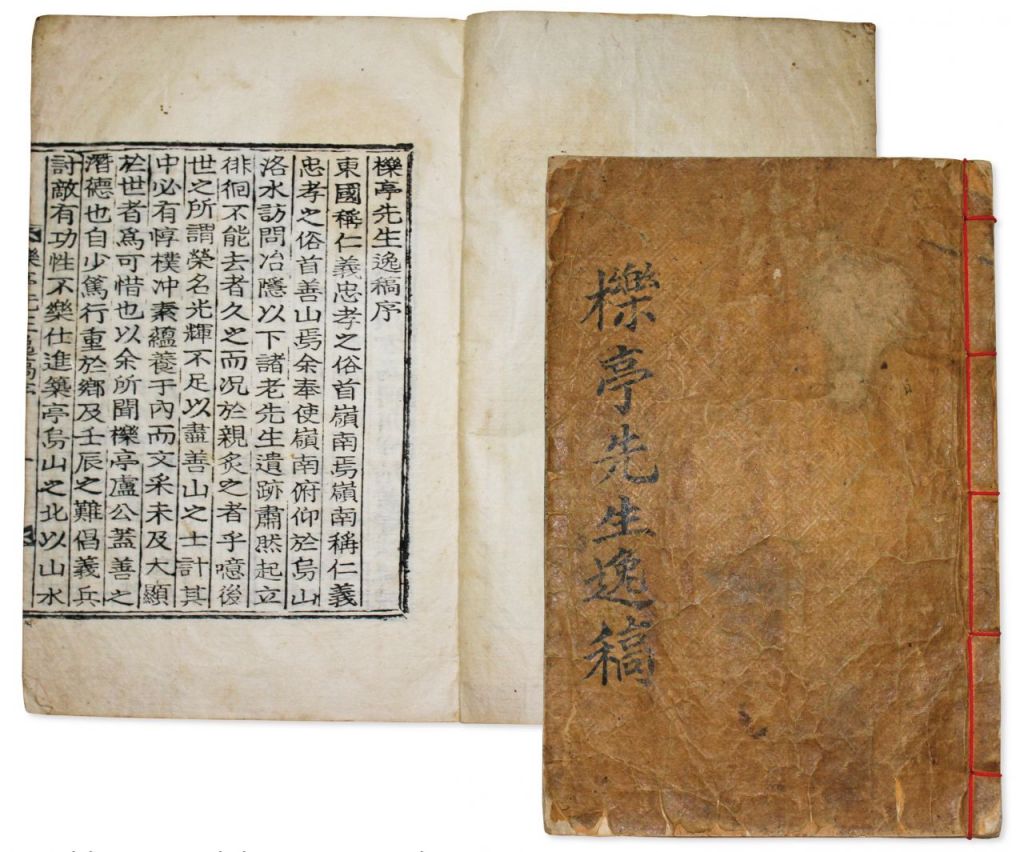 櫟亭先生逸稿序
東國稱仁義忠孝之俗首嶺南焉嶺南稱仁義
忠孝之俗首善山焉余奉使嶺南俯仰於烏山
洛水訪問冶隱以下諸老先生遺跡肅然起立
徘徊不能去者久之而况於親炙之者乎噫後
世之所謂榮名光輝不足以盡善山之士計其
中必有惇樸冲素蘊養于內而文采未及大顯
於世者爲可惜也以余所聞櫟亭盧公蓋善之
潛德也自少篤行重於鄕及壬辰之難倡義兵
討敵有功性不樂仕進築亭烏山之北以山水
櫟亭先生逸稿